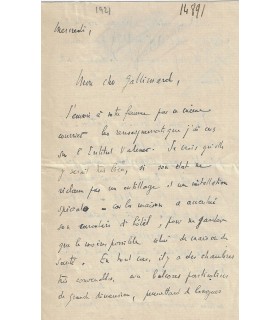 1921
14891
Mercredi,
Mon cher Gallimard,
J'envoie à votre femme par ce même
courrier les renseignements que j'ai eus
sur l'Institut Valmont. Je crois qu'elle
y serait très bien, si son état ne
réclame pas un outillage et une installation
spéciale — car la maison a accentué
son caractère d'hôtel, pour ne garder
que le moins possible celui de maison de
santé. En tout cas, il y a des chambres
très convenables, au Valmont particulières
de grande dimension, permettant de longues